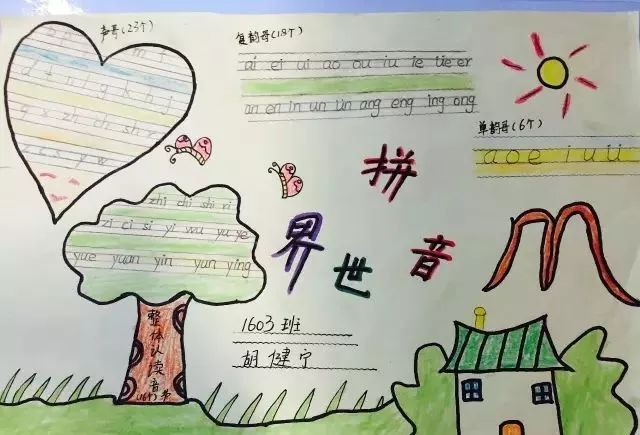 声母(23个)
b p m f
d t n l g k h j
q x zh ch sh r
z c s y w
复韵母(18个)
ai ei ui ao ou iu ie üe er
an en in un ün ang eng ing ong
单韵母(6个)
a o e i u ü
拼
音
世
界
zhi chi shi ri
zi ci si yi wu yu ye
yue yuan yin yun ying
整体认读音节
(16个)
1603班
胡健宁